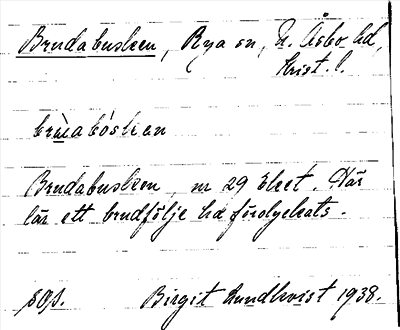 Brudabusken, Rya sn, N. Åsbo hd,
Krist. l.
brùa bósken
Brudabusken, nr 29 Eket. Här
lär ett brudfölje ha förolyckats.
sOs.   Birgit Lundkvist 1938.